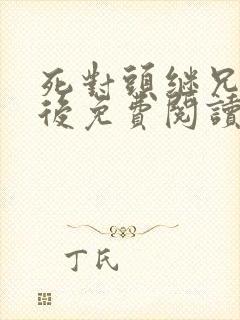 死對頭继兄
後免費閱讀
丁氏